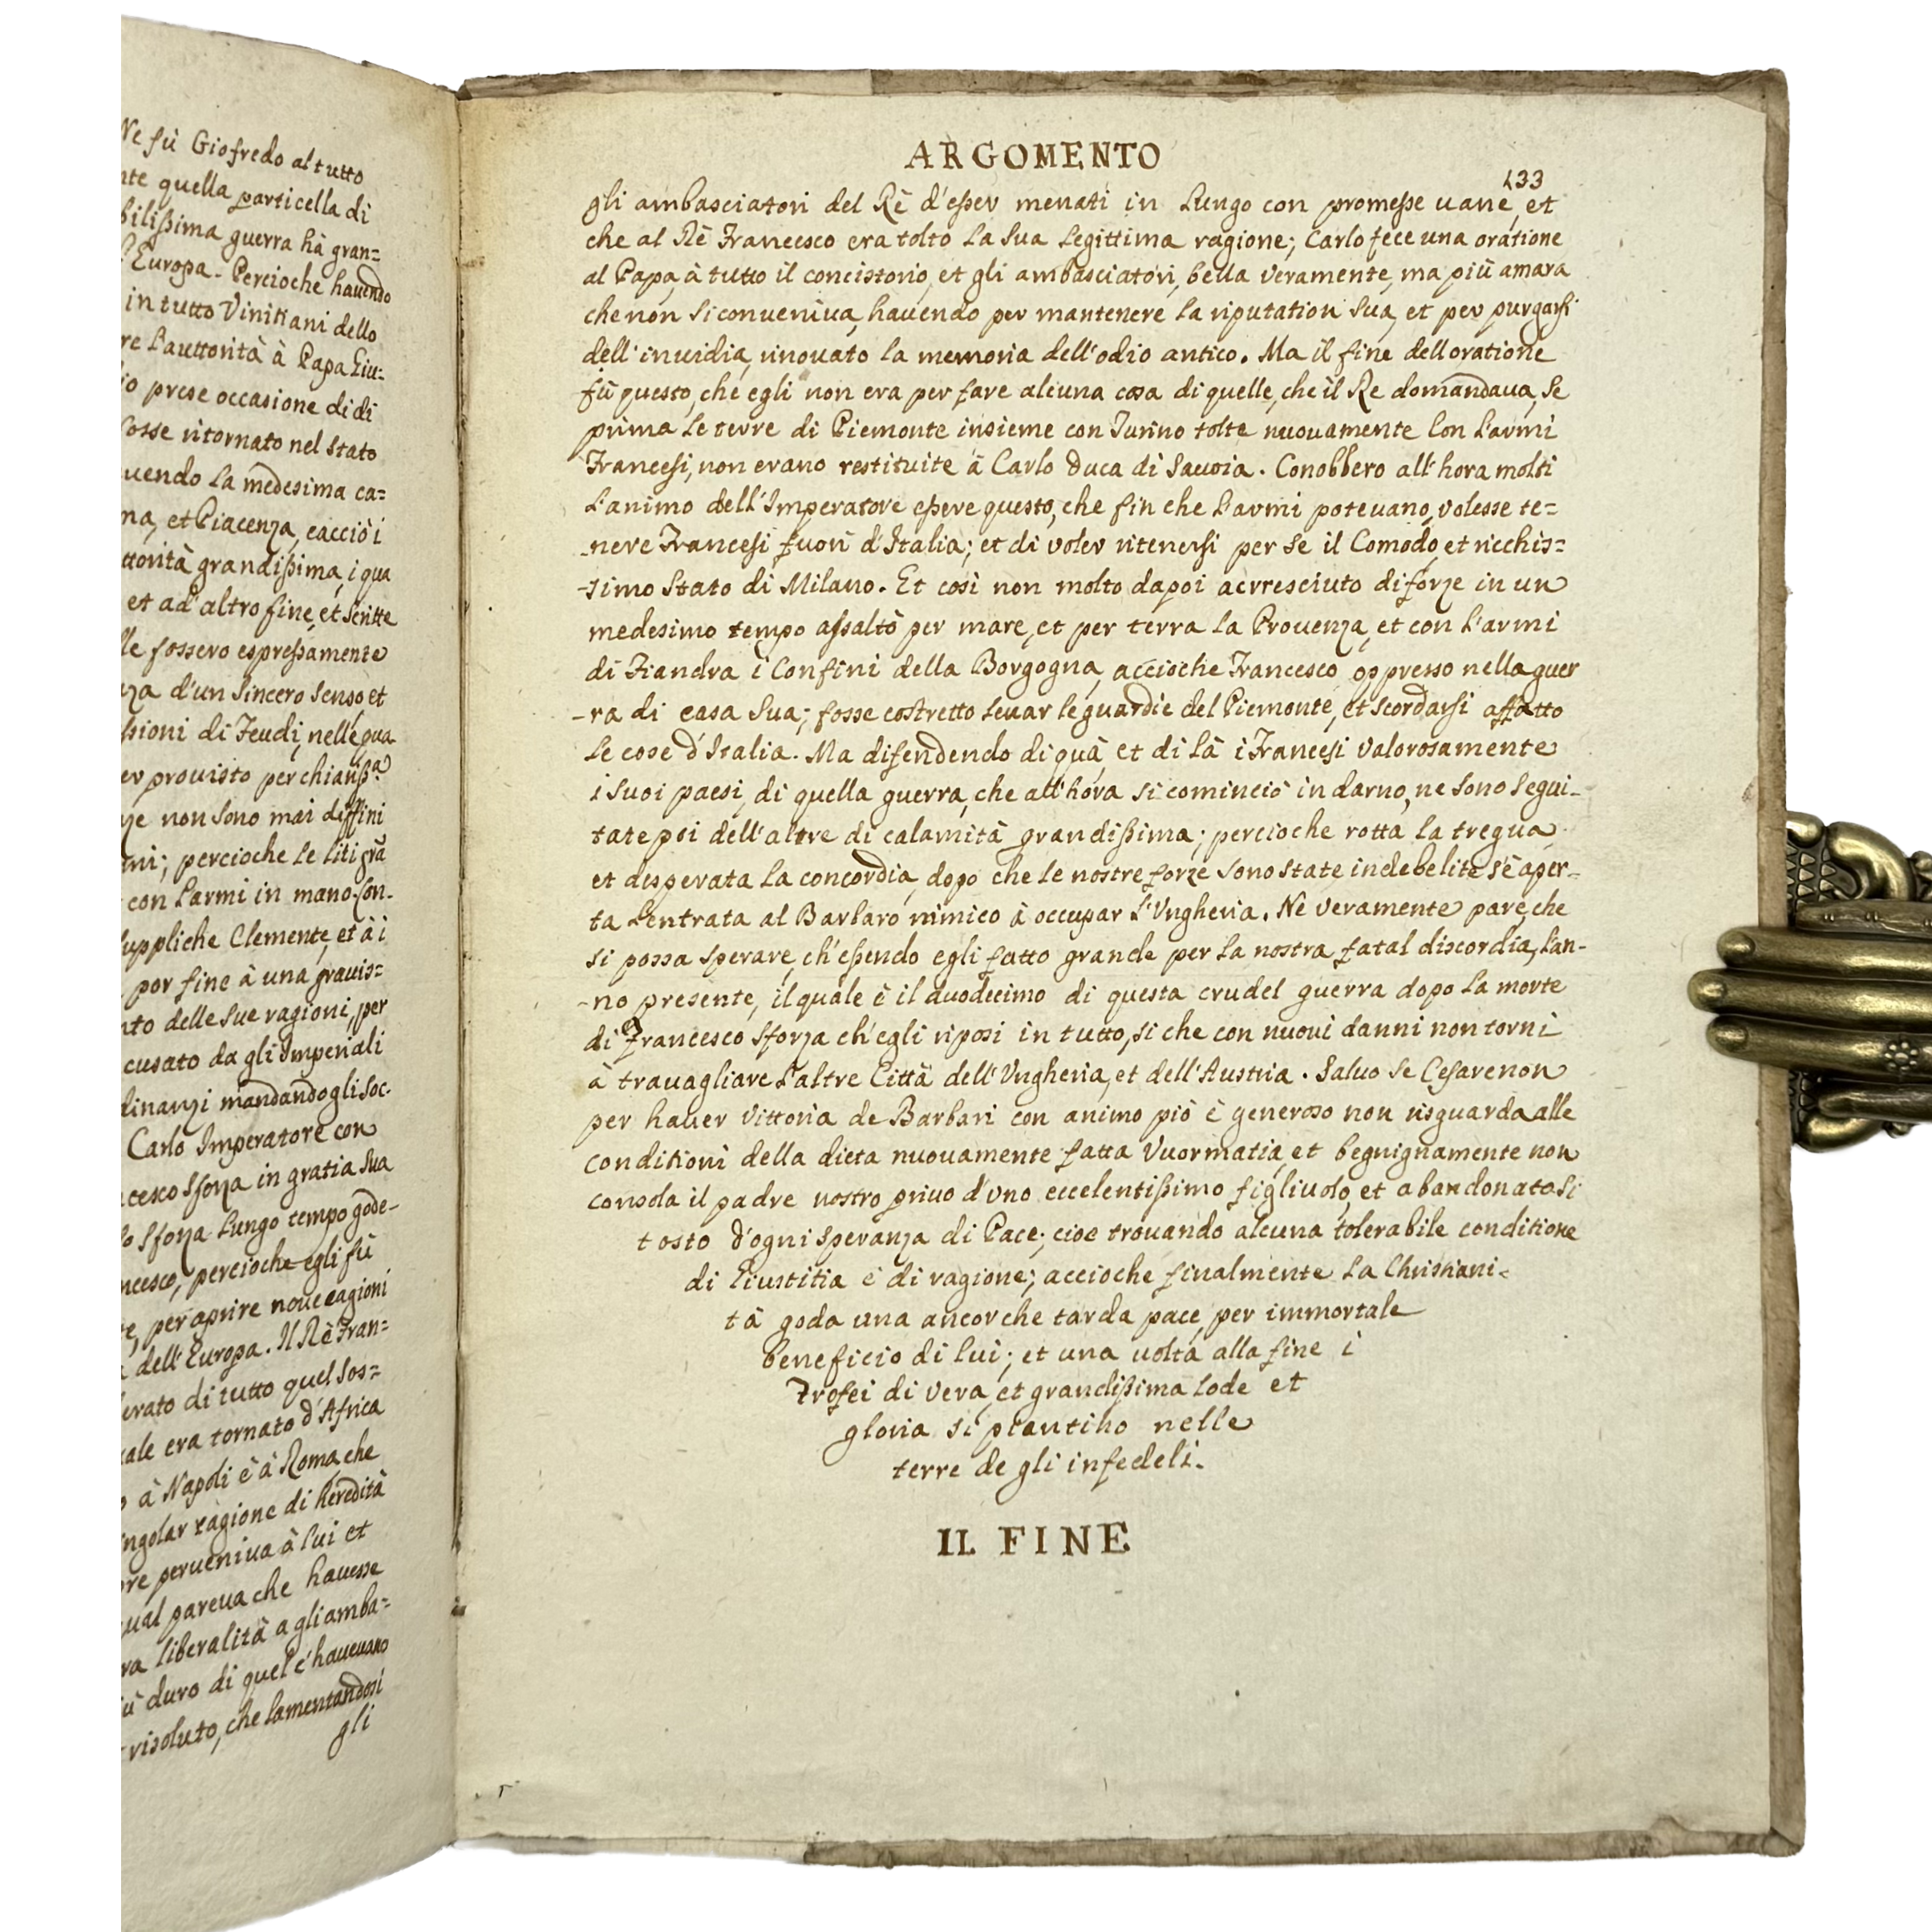 Ne fù Giofredo al tutto
quella particella di
guerra hà gran=
Europa. Percioche hauendo
in tutto Vinitiani dello
l'auttorità à Papa Giu=
prese occasione di di
fosse ritornato nel stato
la medesima ca=
et Piacenza, cacciò i
grandißima, i qua
et ad altro fine, et scritte
fossero espreßamente
d'un sincero senso, et
di Feudi, nelle qua
prouisto per chiariß.ª
non sono mai diffini
percioche le liti grã
con l'armi in mano. Con.
suppliche Clemente, et à i
por fine à una grauis=
delle sue ragioni, per
da gli Imperiali
mandandogli soc.
Carlo Imperatore con
Sforza in gratia sua
Sforza lungo tempo gode-
percioche egli fù
per aprire noue cagioni
dell'Europa. Il Rè Fran=
di tutto quel sos=
era tornato d'Africa
à Napoli è à Roma, che
ragione di heredità
perueniua à lui et
pareua che hauesse
liberalità a gli amba=
duro di quel c'haueuano
risoluto, che lamentandosi
gli
ARGOMENTO
133
gli ambasciatori del Rè d'eßer menati in lungo con promeße uane, et
che al Rè Francesco era tolto la sua legittima ragione; Carlo fece una oratione
al Papa, à tutto il concistorio, et gli ambasciatori, bella veramente, ma più amara
che non si conueniua, hauendo per mantenere la riputation sua, et per purgarsi
dell'inuidia, rinouato la memoria dell'odio antico. Ma il fine dell oratione
fù questo, che egli non era per fare alcuna cosa di quelle, che il Re domandaua, se
prima le terre di Piemonte insieme con Turino tolte nuouamente con l'armi
Francesi, non erano restituite à Carlo Duca di Sauoia. Conobbero all'hora molti
l'animo dell'Imperatore eßere questo, che fin che l'armi poteuano, volesse te=
-nere Francesi fuori d'Italia; et di voler ritenersi per se il Comodo, et ricchis=
-simo stato di Milano. Et così non molto dapoi accresciuto di forze in un
medesimo tempo assaltò per mare, et per terra la Prouenza, et con l'armi
di Fiandra i Confini della Borgogna, accioche Francesco oppresso nella guer
-ra di casa sua; fosse costretto leuar le guardie del Piemonte, et scordarsi affatto
le cose d'Italia. Ma difendendo di quà, et di là i Francesi valorosamente
i suoi paesi, di quella guerra, che all'hora si cominciò in darno, ne sono segui-
tate poi dell'altre di calamità grandißima; percioche rotta la tregua
et disperata la concordia, dopo che le nostre forze sono state indebelite s'è aper-
ta l'entrata al Barbaro nimico à occupar l'Vngheria. Nè veramente pare, che
si possa sperare, ch'eßendo egli fatto grande per la nostra fatal discordia, l'an-
-no presente, il quale è il duodecimo di questa crudel guerra dopo la morte
di Francesco Sforza ch'egli riposi in tutto, si che con nuoui danni non torni
à trauagliare l'altre Città dell'Vngheria, et dell'Austria. Saluo se Cesare non
per hauer vittoria de Barbari con animo piò è generoso non risguarda alle
conditioni della dieta nuouamente fatta Vuormatia, et begnignamente non
consola il padre nostro priuo d'uno eccelentißimo figliuolo, et abandonatosi
tosto d'ogni speranza di Pace; cioe trouando alcuna tolerabile conditione
di Giustitia è di ragione; accioche finalmente la Christiani-
tà goda una ancorche tarda pace, per immortale
beneficio di lui; et una uolta alla fine i
trofei di vera, et grandißima lode et
gloria si piantino nelle
terre de gli infedeli.
IL FINE